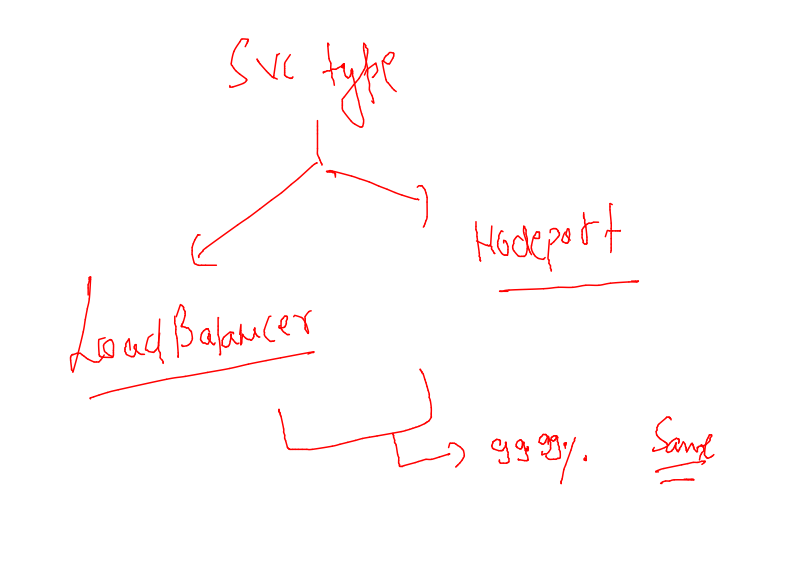 Svc type
Nodeport
LoadBalancer
99.99%. Same